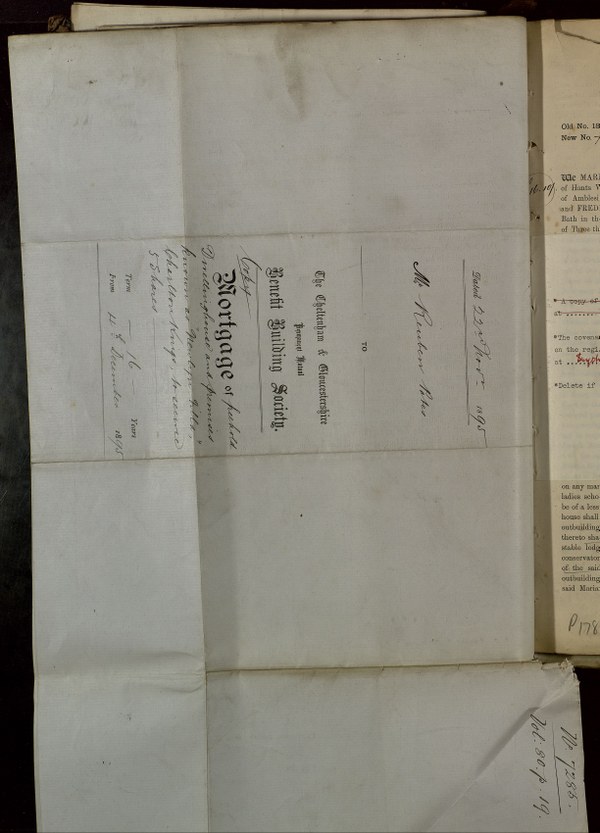 Dated 22nd Novr. 1895
Mr Reuben Yates
TO
The Cheltenham & Gloucestershire
Permanent Mutual
Benefit Building Society.
Copy
Mortgage of freehold
Dwellinghouse and premises
known as
Charlton Kings, to secure
5 Shares
Term 16 Years
From 4th December 1895
No 7285.
Vol: 80. p. 19.
Old No. 
New No. 
We MARI
of Hants W
of Amblesi
and FRED
Bath in the
of Three th
* A copy of
at
*The covena
on the regi
at
*Delete if
on any man
ladies scho
be of a less
house shall
outbuilding
thereto sha
stable lodg
conservator
of the said
outbuilding
said Maria
P178